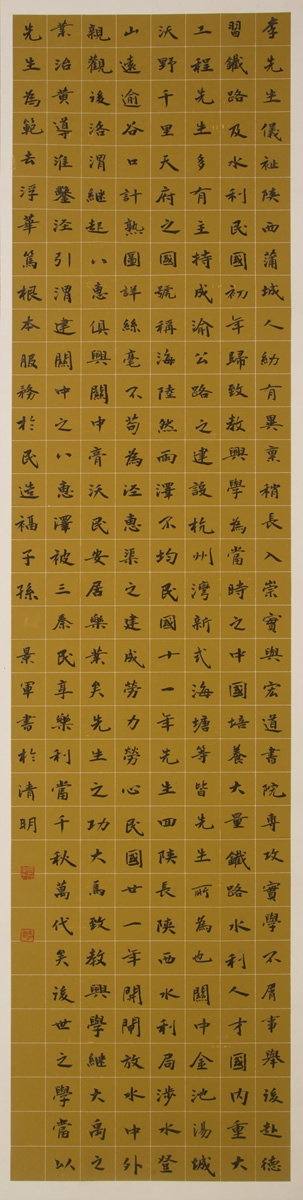 李先生儀祉陝西蒲城人幼有異稟稍長入崇實與宏道書院專攻實學不屑事舉後赴德
習鐵路及水利民國初年歸致教興學為當時之中國培養大量鐵路水利人才國內重大
工程先生多有主持成渝公路之建設杭州灣新式海塘等皆先生所為也關中金池湯城
沃野千里天府之國號稱海陸然雨澤不均民國十一年先生回陝長陝西水利局涉水登
山遠逾谷口計熟圖詳絲毫不苟為涇惠渠之建成勞力勞心民國廿一年開閘放水中外
親觀後洛渭繼起八惠俱興關中膏沃民安居樂業矣先生之功大焉致教興學繼大禹之
業治黃導淮鑿涇引渭建關中之八惠澤被三秦民享樂利當千秋萬代矣後世之學當以
先生為範去浮華篤根本服務於民造福子孫 景軍書於清明